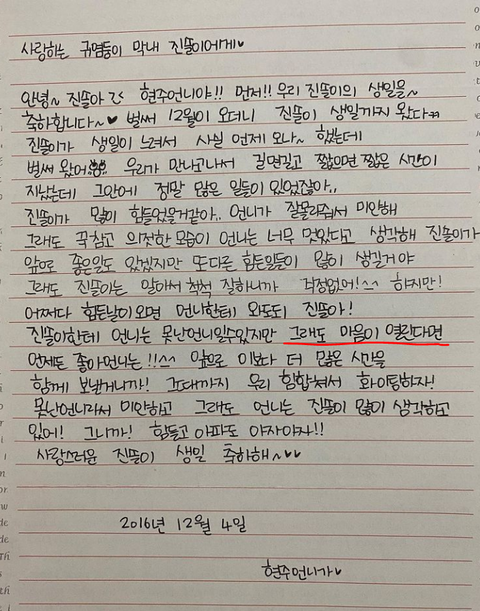 사랑하는 귀염둥이 막내 진쏠이에게♥
안녕~ 진쏠아 현주언니야!! 먼저!! 우리 진쏠이의 생일을~
축하합니다~♥ 벌써 12월이 오더니 진쏠이 생일까지 왔다ㅋㅋ
진쏠이가 생일이 느려서 사실 언제 오나~ 했는데
벌써 왔어 우리가 만나고나서 길면길고 짧으면 짧은 시간이
지났는데 그안에 정말 많은 일들이 있었잖아..
진쏠이가 많이 힘들었을거같아.. 언니가 잘몰라줘서 미안해
그래도 꾹참고 의젓한 모습이 언니는 너무 멋있다고 생각해 진쏠이가
앞으로 좋은일도 있겠지만 또다른 힘든일들이 많이 생길거야
그래도 진쏠이는 알아서 척척 잘하니까 걱정없어!^^ 하지만!
어쩌다 힘든날이오면 언니한테 와도되 진쏠아!
진쏠이한테 언니는 못난언니일수있지만 그래도 마음이 열린다면
언제든 좋아언니는!!^^ 앞으로 이보다 더 많은 시간을
함께 보낼거니까! 그때까지 우리 힘합쳐서 화이팅하자!
못난언니라서 미안하고 그래도 언니는 진쏠이 많이 생각하고
있어! 그니까! 힘들고 아파도 야자야자!!
사랑스러운 진쏠이 생일 축하해~♥♥
2016년 12월 4일
현주언니가♥